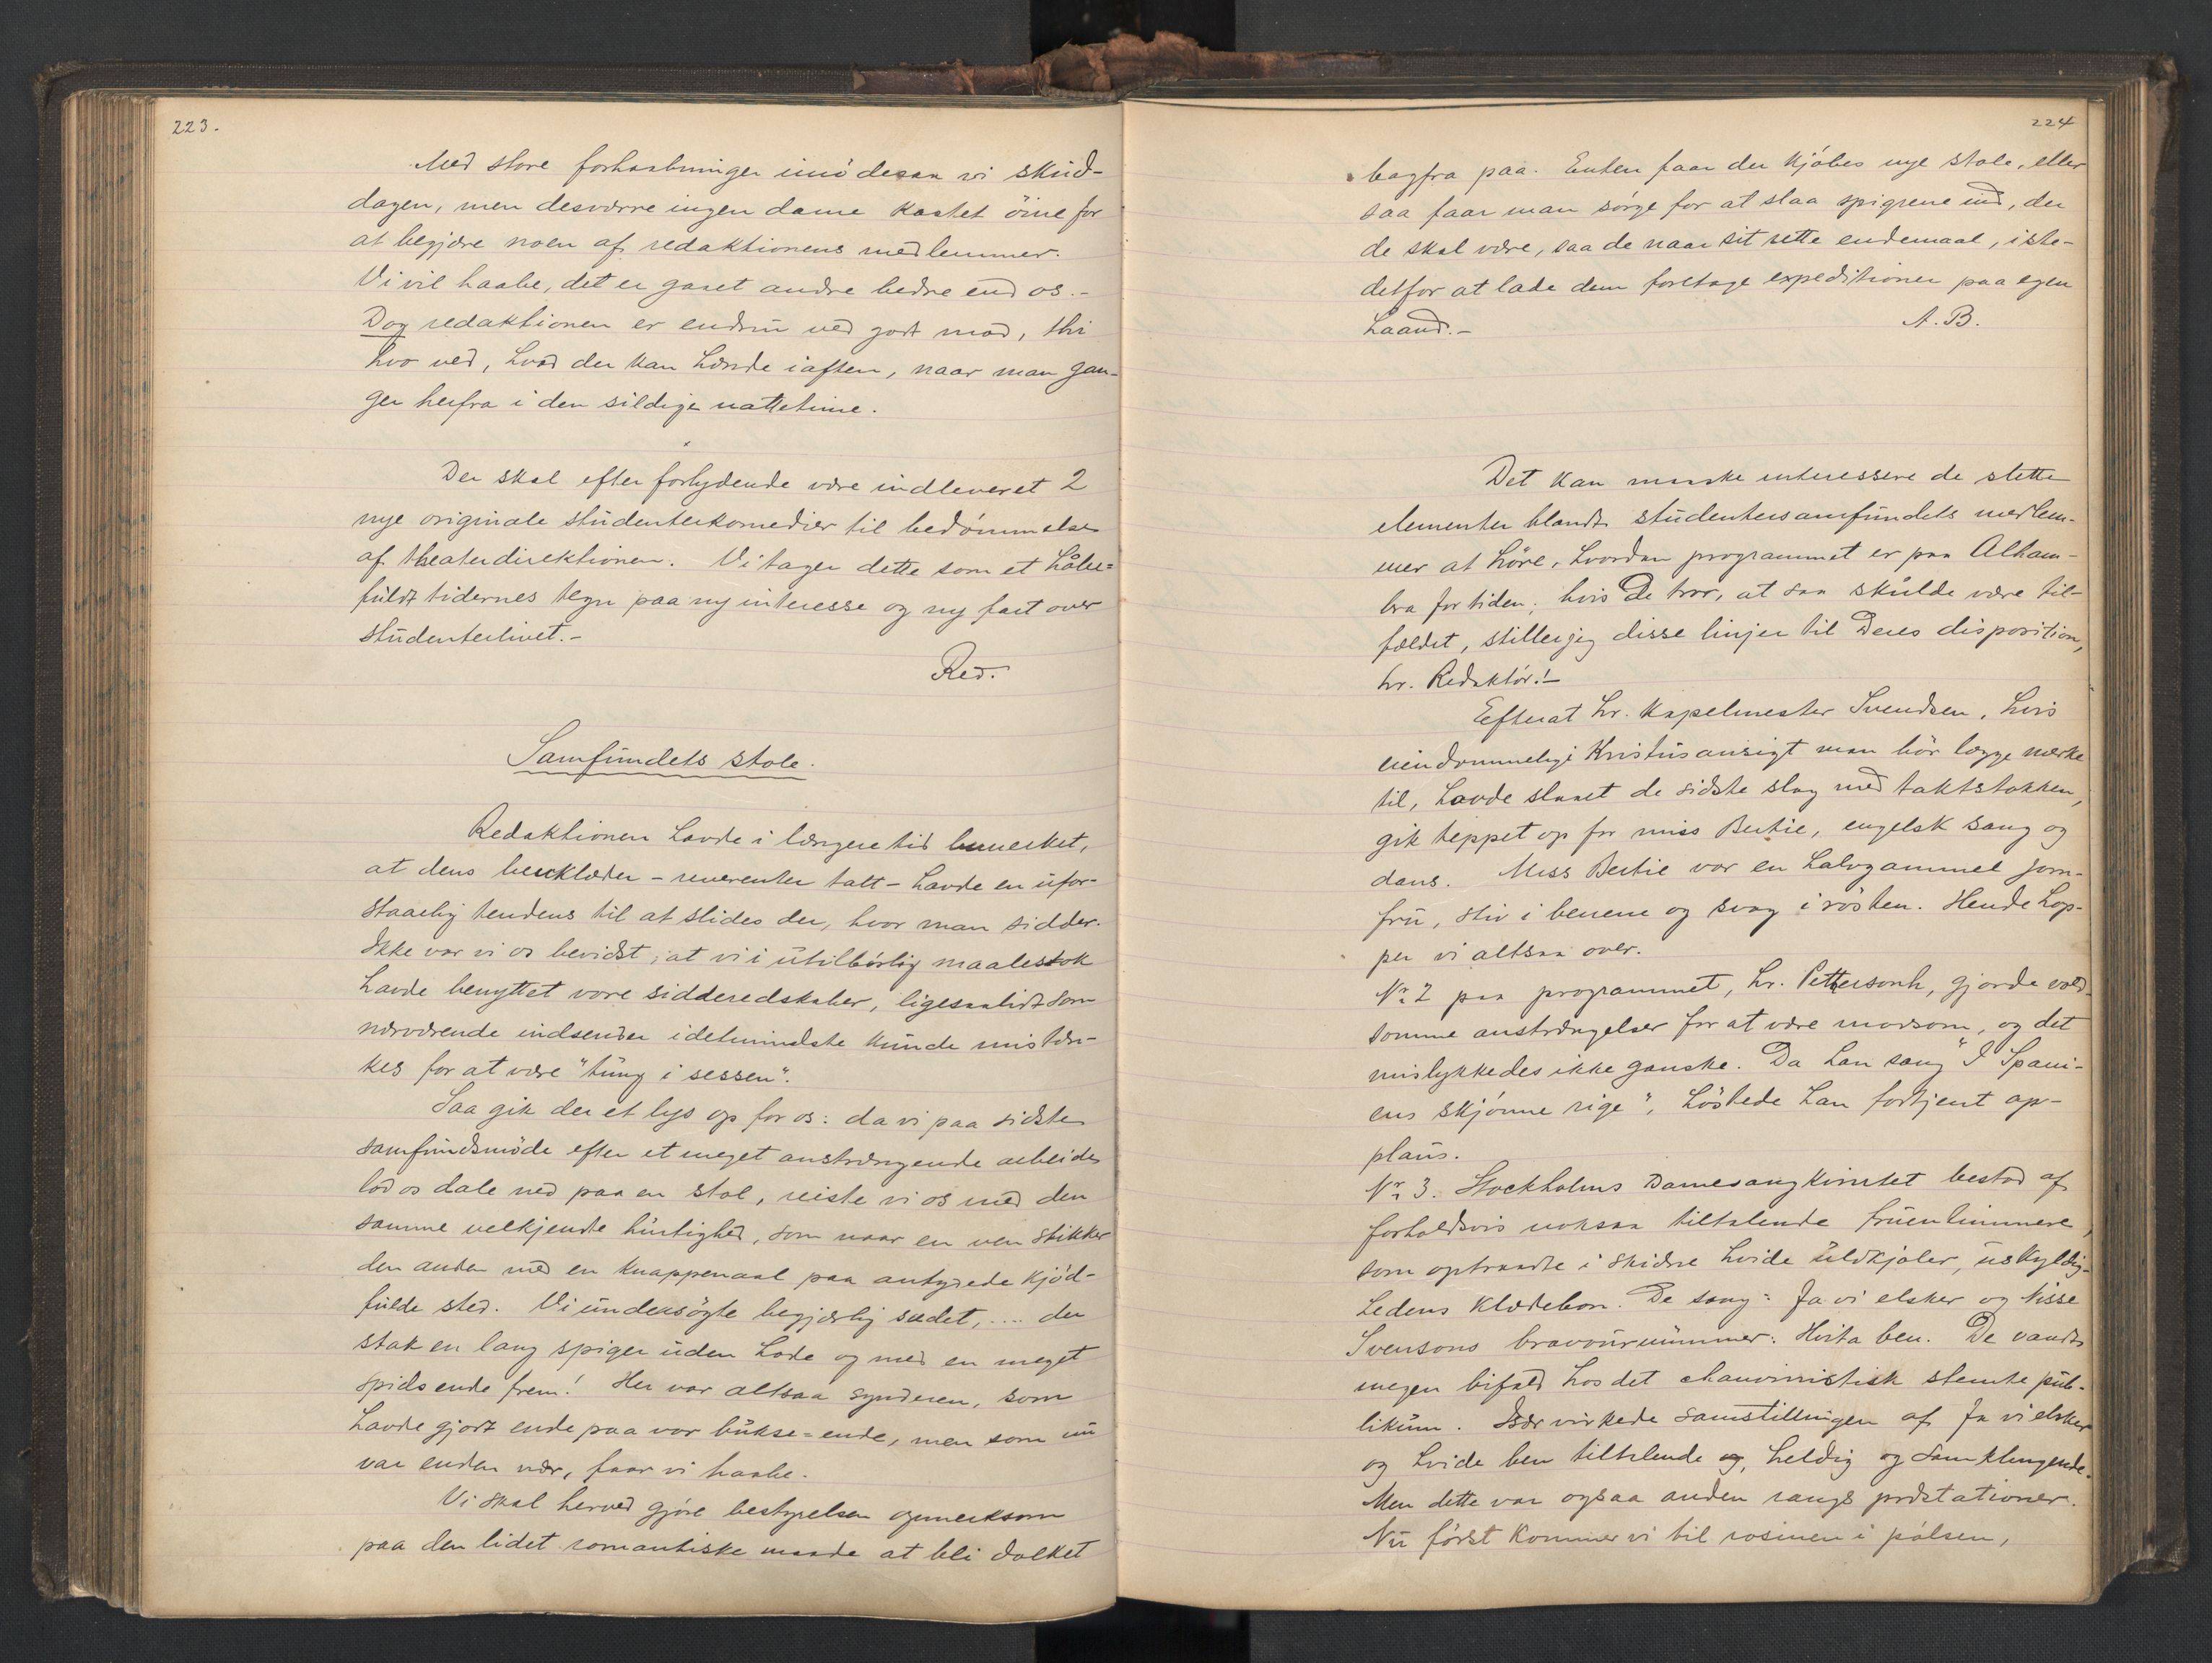 223.
Med store forhaabninger imödesaa vi skud-
dagen, men desværre ingen dame kastet öine for
at begjære noen af redaktionens medlemmer.
Vi vil haabe, det er gaaet andre bedre end os.-
Dog redaktionen er endnu ved godt mod, thi
hvo ved, hvad der kan hænde iaften, naar man gan-
ger herfra i den sildige nattetime.
Der skal efter forlydende være indleveret 2
nye originale studenterkomedier til bedömmelse
af theaterdirektionen. Vi tager dette som et håbe=
fuldt tidernes tegn paa ny interesse og ny fart over
studenterlivet.-
Red.
Samfundets stole.
Redaktionen havde i længere tid bemerket,
at dens benklæder - reverenter talt - havde en ufor-
staaelig tendens til at slides der, hvor man sidder.
Ikke var vi os bevidst, at vi i utilbörlig maalestok
havde benyttet vore sidderedskaber, ligesaalidt som
nærværende indsender idetmindste kunde mistæn-
kes for at være "tung i sessen".
Saa gik der et lys op for os: da vi paa sidste
samfundsmöde efter et meget anstrængende arbeide
lod os dale ned paa en stol, reiste vi os med den
samme velkjendte hurtighed, som naar en ven stikker
den anden med en knappenaal paa antydede kjöd-
fulde sted. Vi undersögte begjærlig sædet, .... der
stak en lang spiger uden hode og med en meget
spids ende frem! Her var altsaa synderen, som
havde gjort ende paa vor bukse=ende, men som nu
var enden nær, faar vi haabe.
Vi skal herved gjöre bestyrelsen opmerksom
paa den lidet romantiske maade at bli dolket
224
bagfra paa. Enten faar der kjöbes nye stole, eller
saa faar man sörge for at slaa spigrene ind, der
de skal være, saa de naar sit rette endemaal, iste-
detfor at lade dem foretage expeditioner paa egen
haand.-
A. B.
Det kan maaske interessere de slette
elementer blandt studentersamfundets medlem-
mer at höre, hvordan programmet er paa Alham-
bra for tiden; hvis De tror, at saa skulde være til-
fældet, stiller jeg disse linjer til Deres disposition,
hr. Redaktör!-
Eefterat hr. kapelmester Svendsen, hvis
eiendommelige Kristusansigt man bör lægge mærke
til, havde slaaet de sidste slag med taktstokken,
gik teppet op for miss Bertie, engelsk sang og
dans. Miss Bertie var en halvgammel jom-
fru, stiv i benene og svag i rösten. Hende hop-
per vi altsaa over.
Nr. 2 paa programmet, hr. Pettersonh, gjorde vold-
somme anstrængelser for at være morsom, og det
mislykkedes ikke ganske. Da han sang "I Spani-
ens skjönne rige", höstede han fortjent ap-
plaus.
Nr. 3. Stockholms Damesangkvintet bestod af
forholdsvis noksaa tiltalende fruentimmere,
som optraadte i skidne hvide uldkjoler, uskyldig-
hedens klædebon. De sang: Ja vi elsker og Nisse
Svensons bravournummer: Hvita ben. De vandt
megen bifald hos det chauvinistisk stemte pub-
likum. Især virkede samstillingen af Ja vi elsker
og hvide ben tiltalende og, heldig og samklingende.
Men dette var ogsaa anden rangs præstationer.
Nu först kommer vi til rosinen i pölsen,